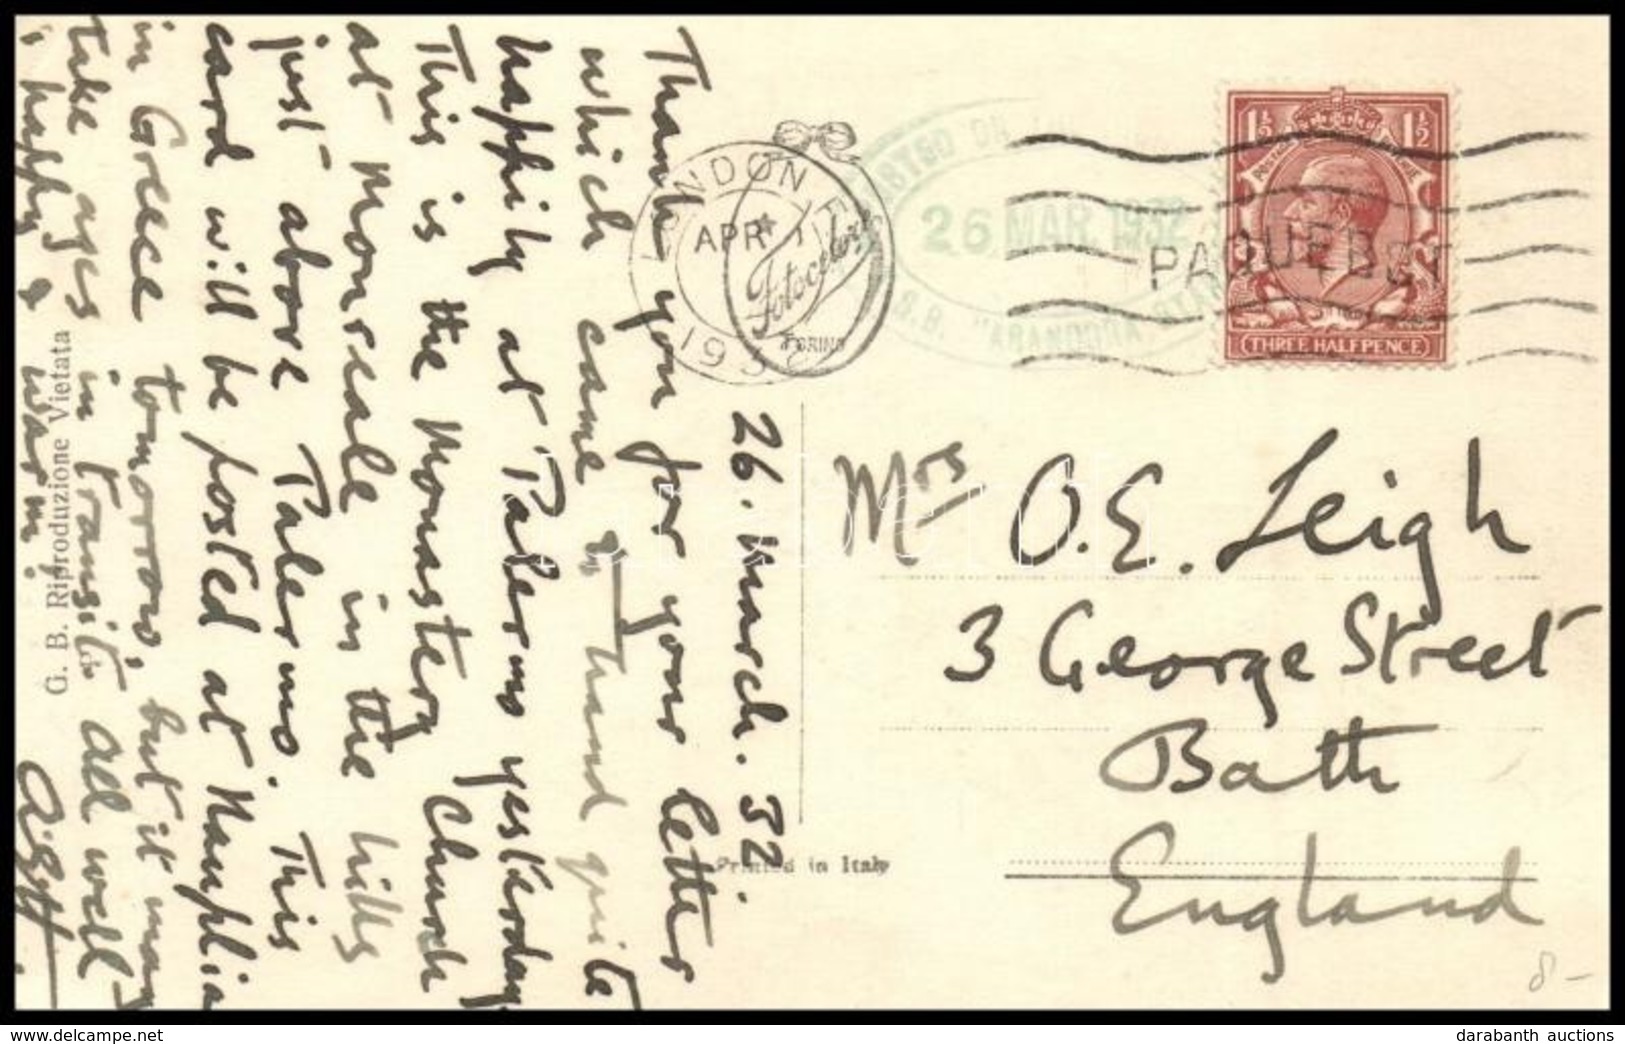 26. March. 32
Thank you for your letter
which came in hand quite
happily at Palermo yesterday
This is the Monastery Church
at Monreale in the hills
just above Palermo. This
card will be posted at Nauplia
in Greece tomorrow, but it may
take ages in transit. All well
& happy & warm.
G. B. Riproduzione Vietata
Printed in Italy
LONDON F.S.
APR 1
1932
Fotocelere
TORINO
POSTED ON THE
26 MAR. 1932
S.S. "ARANDORA STAR
PAQUEBOT
1½ 1½
POSTAGE REVENUE
THREE HALFPENCE
Mrs O.E. Leigh
3 George Street
Bath
England
8-
darabanth auctions